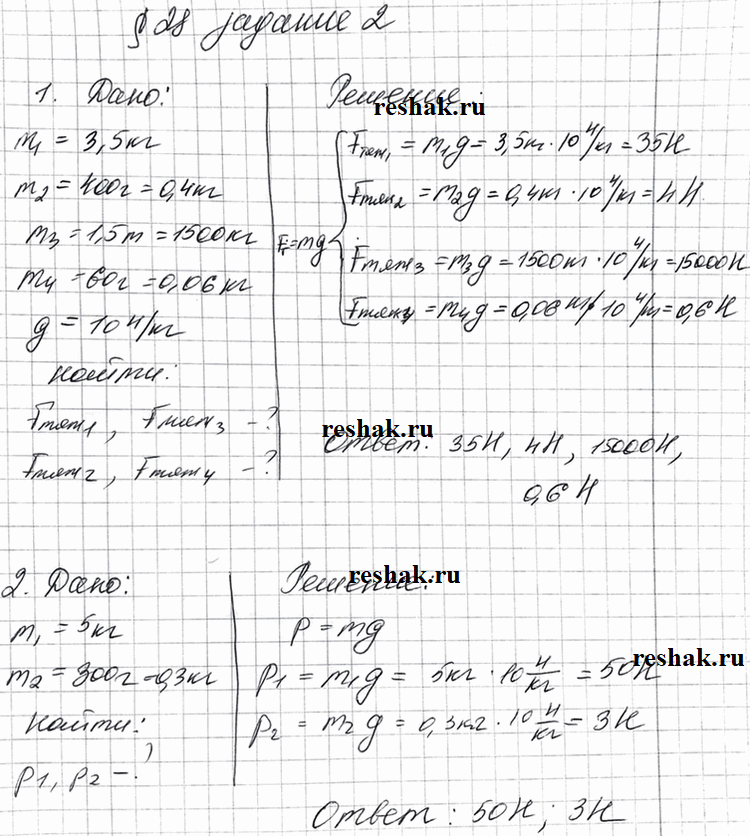 § 28 задание 2
1. Дано:
m₁ = 3,5кг
m₂ = 400г = 0,4кг
m₃ = 1,5т = 1500кг
m₄ = 60г = 0,06кг
g = 10 Н/кг
Найти:
Fтяж1, Fтяж3 - ?
Fтяж2, Fтяж4 - ?
Решение:
reshak.ru
F=mg
Fтяж1 = m₁g = 3,5кг · 10 Н/кг = 35Н
Fтяж2 = m₂g = 0,4кг · 10 Н/кг = 4Н.
Fтяж3 = m₃g = 1500кг · 10 Н/кг = 15000Н
Fтяж4 = m₄g = 0,06кг · 10 Н/кг = 0,6Н
reshak.ru
Ответ: 35Н, 4Н, 15000Н,
0,6Н
2. Дано:
m₁ = 5кг
m₂ = 300г = 0,3кг
Найти:
P1, P2 - ?
Решение:
reshak.ru
P = mg
reshak.ru
P1 = m₁g = 5кг · 10 Н/кг = 50Н
P₂ = m₂g = 0,3кг · 10 Н/кг = 3Н
Ответ: 50Н; 3Н